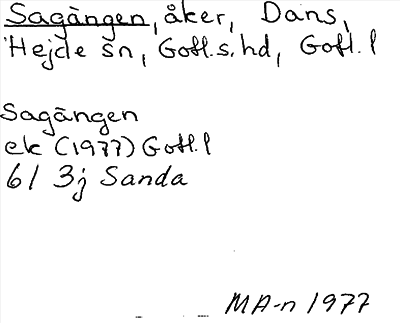 Sagängen, åker, Dans,
Hejde sn, Gotl.s.hd, Gotl. l
Sagängen
ek (1977) Gotl. l
6I 3j Sanda
MA-n 1977